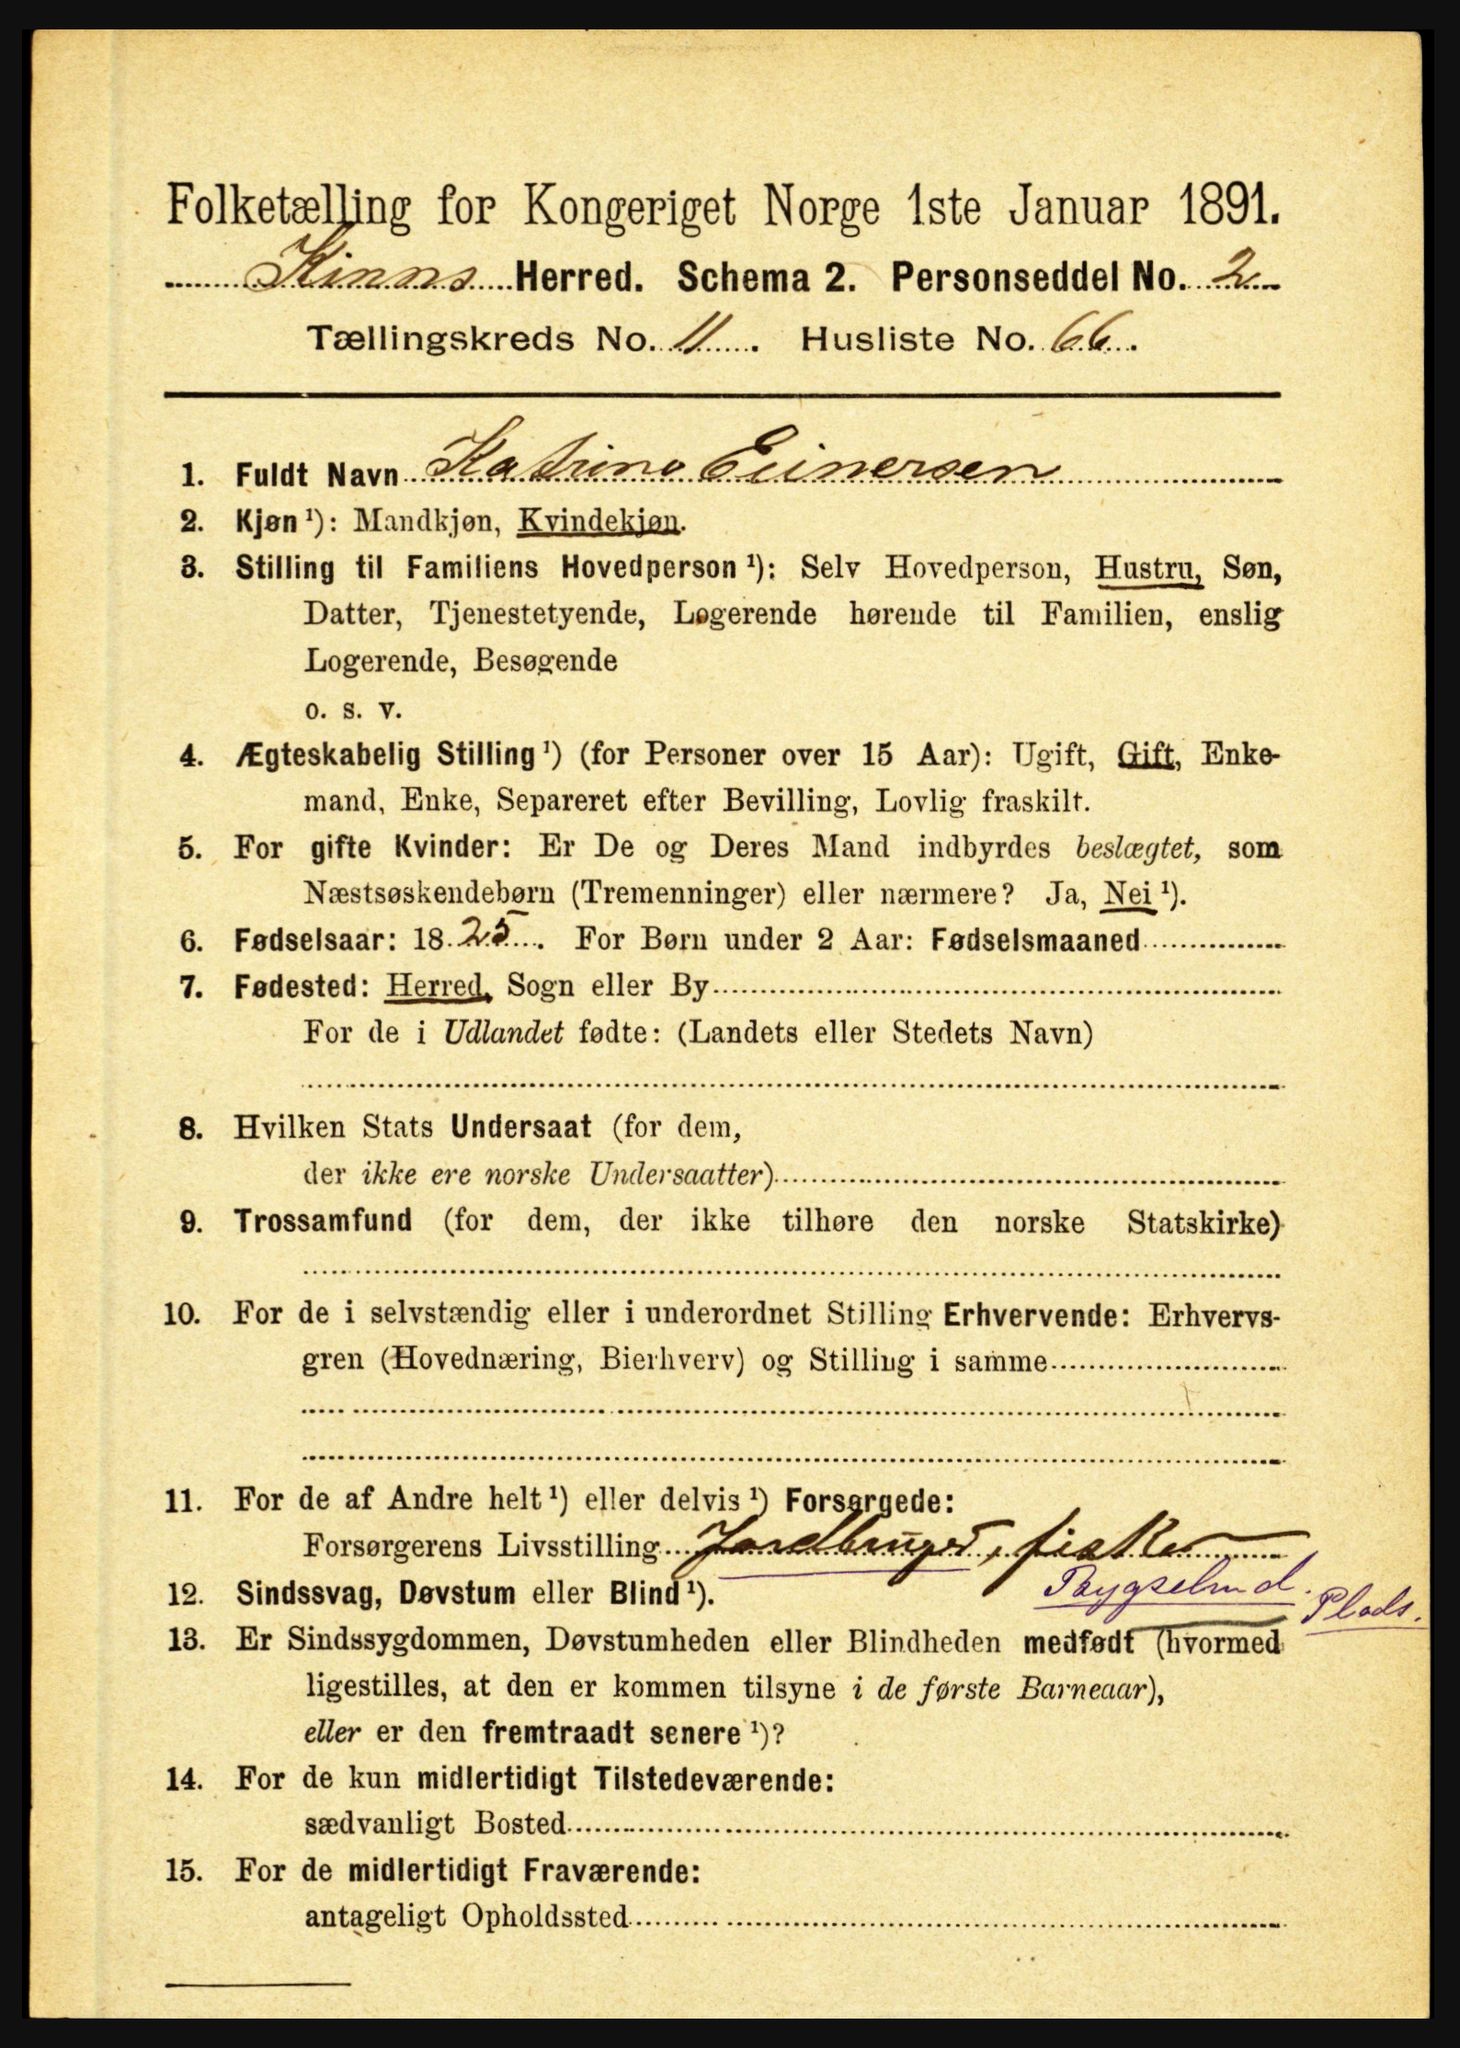 Folketælling for Kongeriget Norge 1ste Januar 1891.
Kinns Herred. Schema 2. Personseddel No. 2
Tællingskreds No. 11. Husliste No. 66.
1. Fuldt Navn Katrine Einersen
2. Kjøn ¹): Mandkjøn, Kvindekjøn.
3. Stilling til Familiens Hovedperson ¹): Selv Hovedperson, Hustru, Søn,
Datter, Tjenestetyende, Logerende hørende til Familien, enslig
Logerende, Besøgende
o. s. v.
4. Ægteskabelig Stilling ¹) (for Personer over 15 Aar): Ugift, Gift, Enke-
mand, Enke, Separeret efter Bevilling, Lovlig fraskilt.
5. For gifte Kvinder: Er De og Deres Mand indbyrdes beslægtet, som
Næstsøskendebørn (Tremenninger) eller nærmere? Ja, Nei ¹).
6. Fødselsaar: 1825. For Børn under 2 Aar: Fødselsmaaned
7. Fødested: Herred, Sogn eller By
For de i Udlandet fødte: (Landets eller Stedets Navn)
8. Hvilken Stats Undersaat (for dem,
der ikke ere norske Undersaatter)
9. Trossamfund (for dem, der ikke tilhøre den norske Statskirke)
10. For de i selvstændig eller i underordnet Stilling Erhvervende: Erhvervs-
gren (Hovednæring, Bierhverv) og Stilling i samme
11. For de af Andre helt ¹) eller delvis ¹) Forsørgede:
Forsørgerens Livsstilling Jordbruger, fisker
12. Sindssvag, Døvstum eller Blind ¹). Bygselmd. Plads.
13. Er Sindssygdommen, Døvstumheden eller Blindheden medfødt (hvormed
ligestilles, at den er kommen tilsyne i de første Barneaar),
eller er den fremtraadt senere ¹)?
14. For de kun midlertidigt Tilstedeværende:
sædvanligt Bosted
15. For de midlertidigt Fraværende:
antageligt Opholdssted